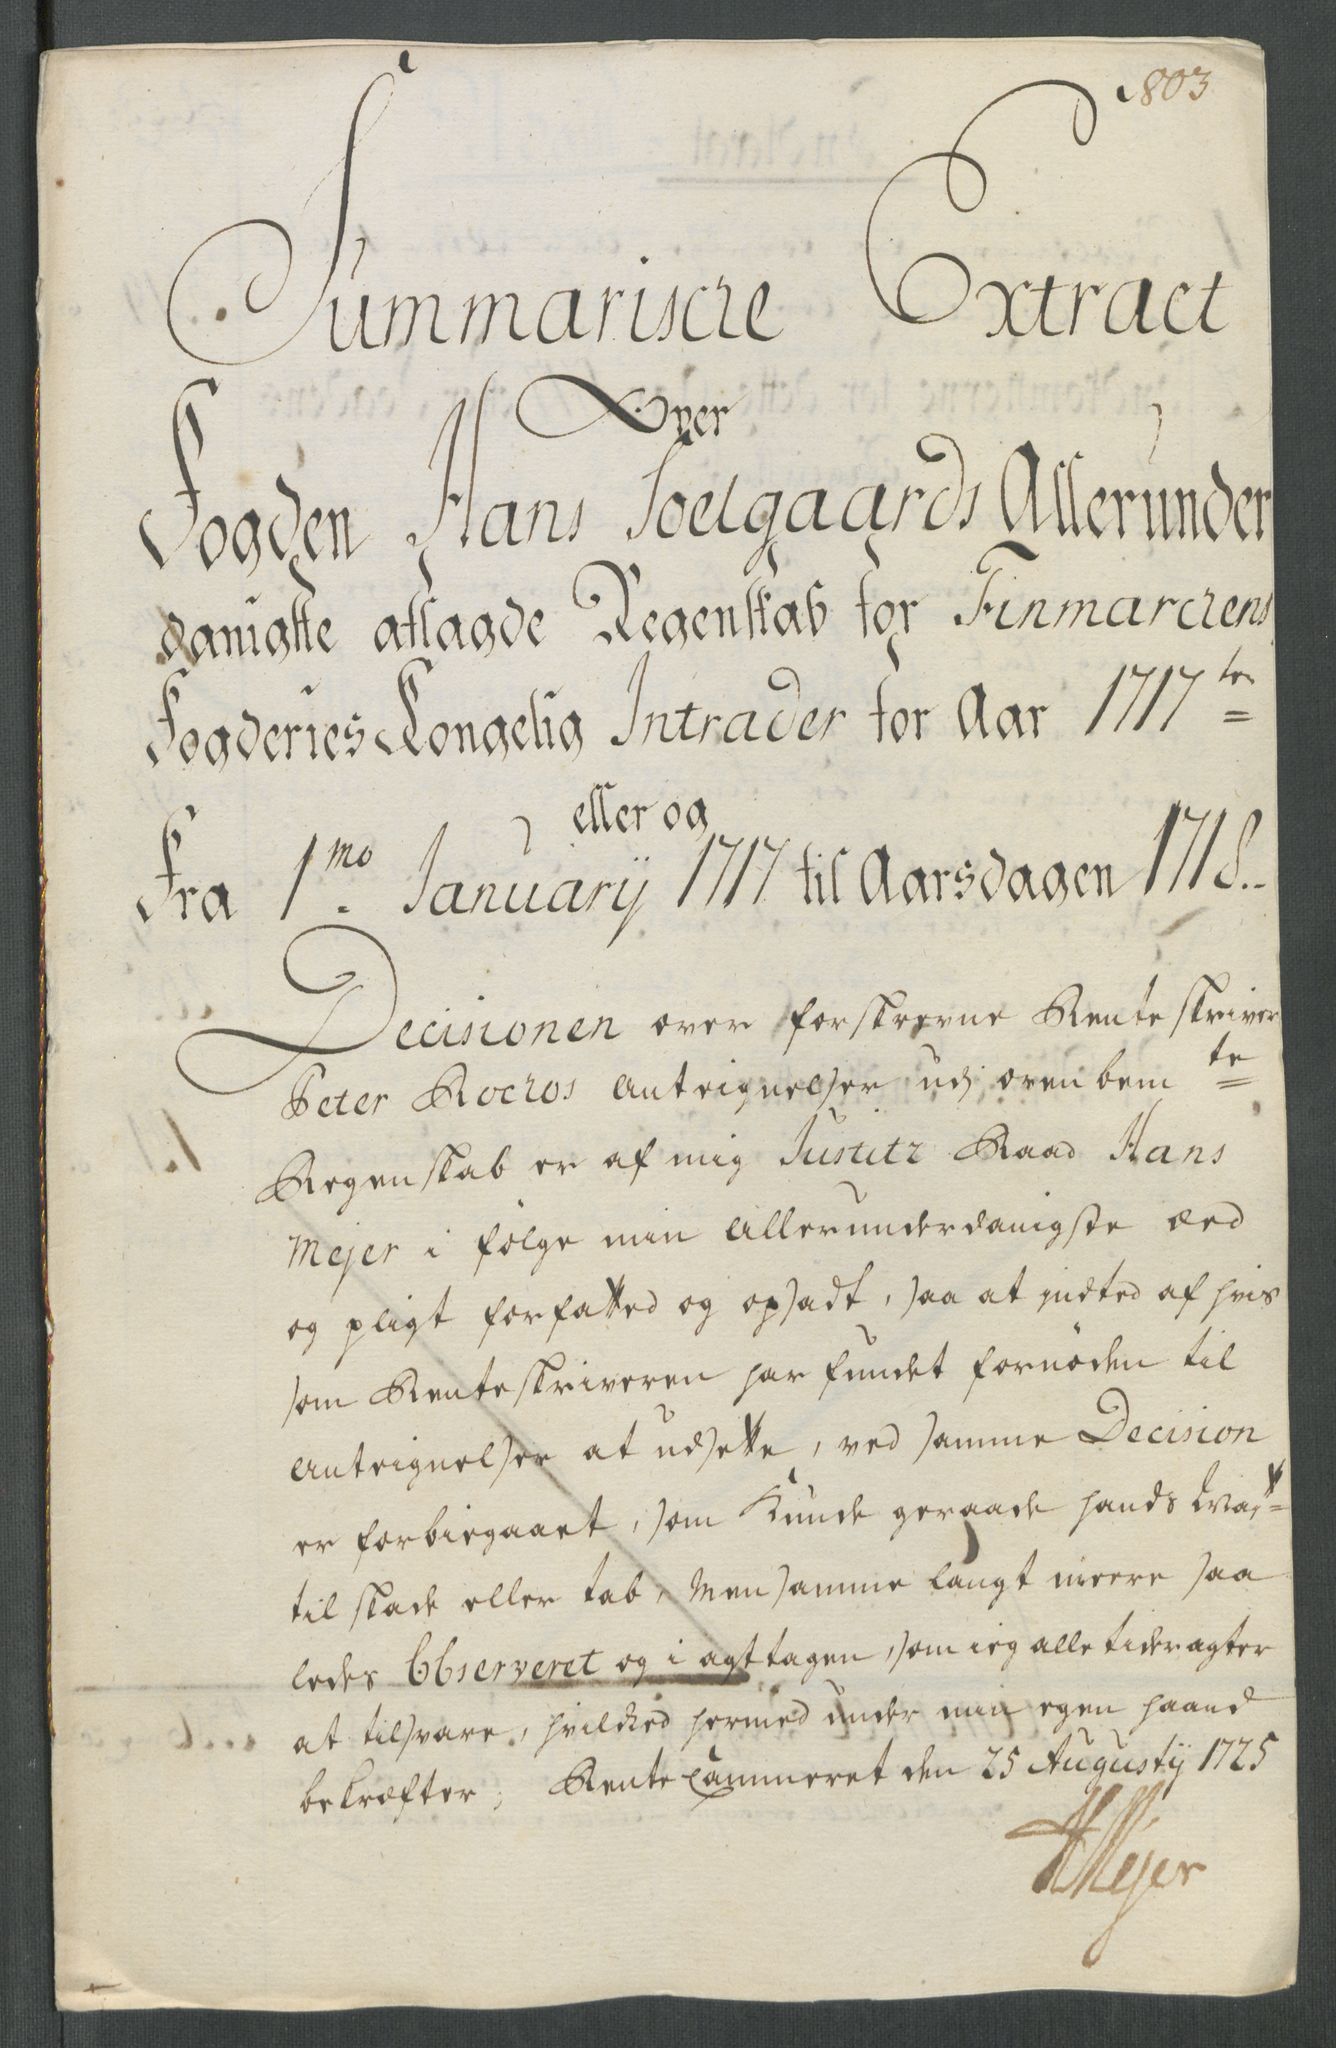 1803
Summarische Extract
Over
Fogden Hans Soelgaards Allerunder
danigste aflagde Regenskab for Finmarchens
Fogderies Kongelig Intrader for Aar 1717 te
eller og
Fra 1mo January 1717 til Aarsdagen 1718..
Decisionen over forskrevne Renteskriver
Peter Rochos Anteignelser udj ovenbem te
Regenskab er af mig Justitz Raad Hans
Mejer i følge min Allerunderdanigste æed
og pligt forfatted og opsadt, saa at indted af hvis
som Renteskriveren har fundet fornøden til
Anteignelser at udsette, ved samme Decision
er forbiegaaet, som Kunde geraade hands
til skade eller tab, Men samme langt meere saa
ledes Observeret og i agt tagen, som ieg alle tider agter
at tilsvare, hvilched hermed under min egen haand
bekræfter; Rente Cammeret den 25 Augusty 1725
HMejer